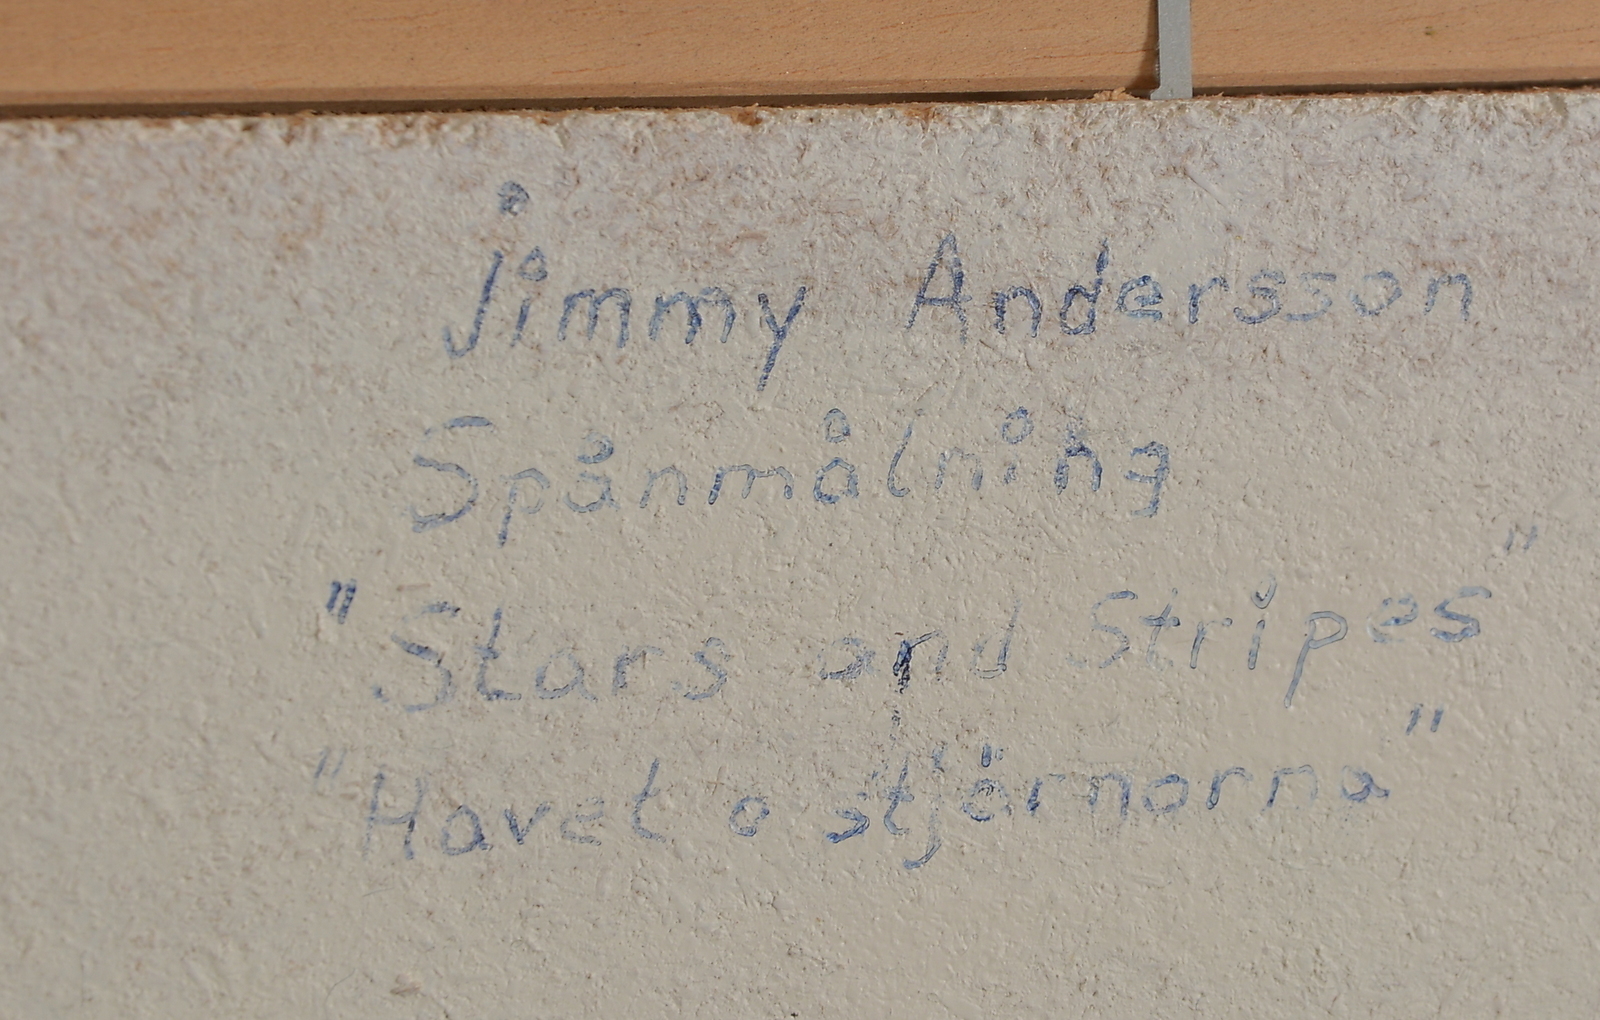 Jimmy Andersson
Spånmålning
"Stars and Stripes"
"Havet o stjärnorna"